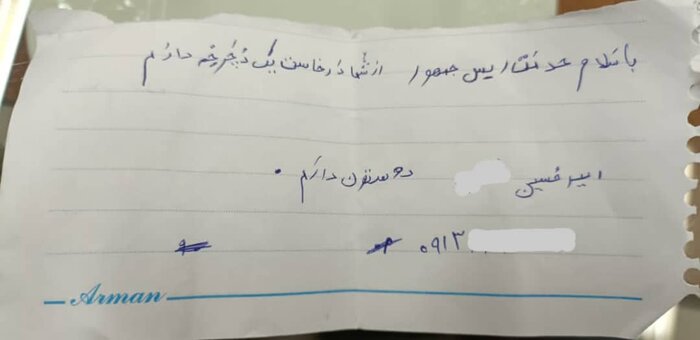 با سلام خدمت رییس جمهور از شما درخاست یک دوچرخه دارم
امیر حسین
دوستون دارم.
۰۹۱۳
Arman